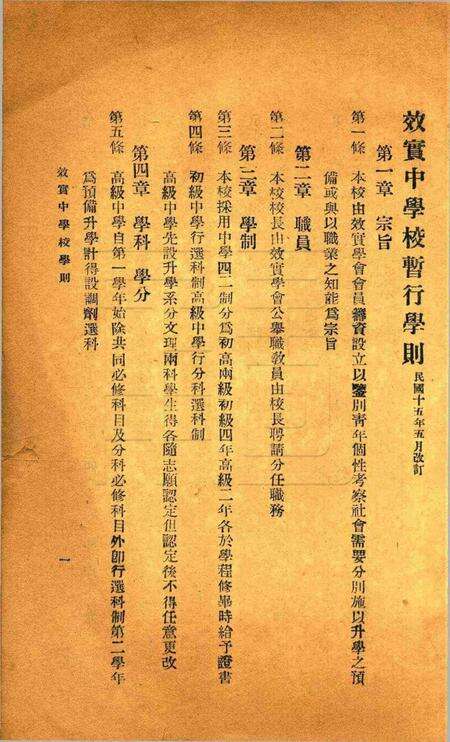 效實中學校暫行學則 民國十五年五月改訂
第一章 宗旨
第一條 本校由效實學會會員籌資設立以鑒別靑年個性考察社會需要分別施以升學之預
備或與以職業之知能爲宗旨
第二章 職員
第二條 本校校長由效實學會公舉職敎員由校長聘請分任職務
第三章 學制
第三條 本校採用中學四二制分爲初高兩級初級四年高級二年各於學程修畢時給予證書
第四條 初級中學行選科制高級中學行分科選科制
高級中學先設升學系分文理兩科學生得各隨志願認定但認定後不得任意更改
第四章 學科 學分
第五條 高級中學自第一學年始除共同必修科目及分科必修科目外卽行選科制第二學年
爲預備升學計得設調劑選科
效實中學校學則
一